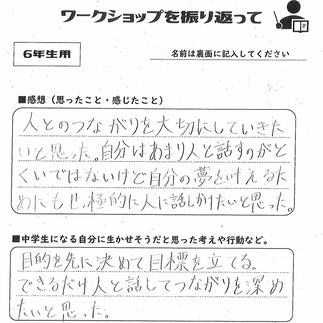 ワークショップを振り返って
6年生用
名前は裏面に記入してください
■感想(思ったこと・感じたこと)
人とのつながりを大切にしていきた
いと思った。自分はあまり人と話すのがと
くいではないけど自分の夢を叶えるた
めにも積極的に人に話しかけたいと思った。
■中学生になる自分に生かせそうだと思った考えや行動など。
目的を先に決めて目標を立てる。
できるだけ人と話してつながりを深め
たいと思った。